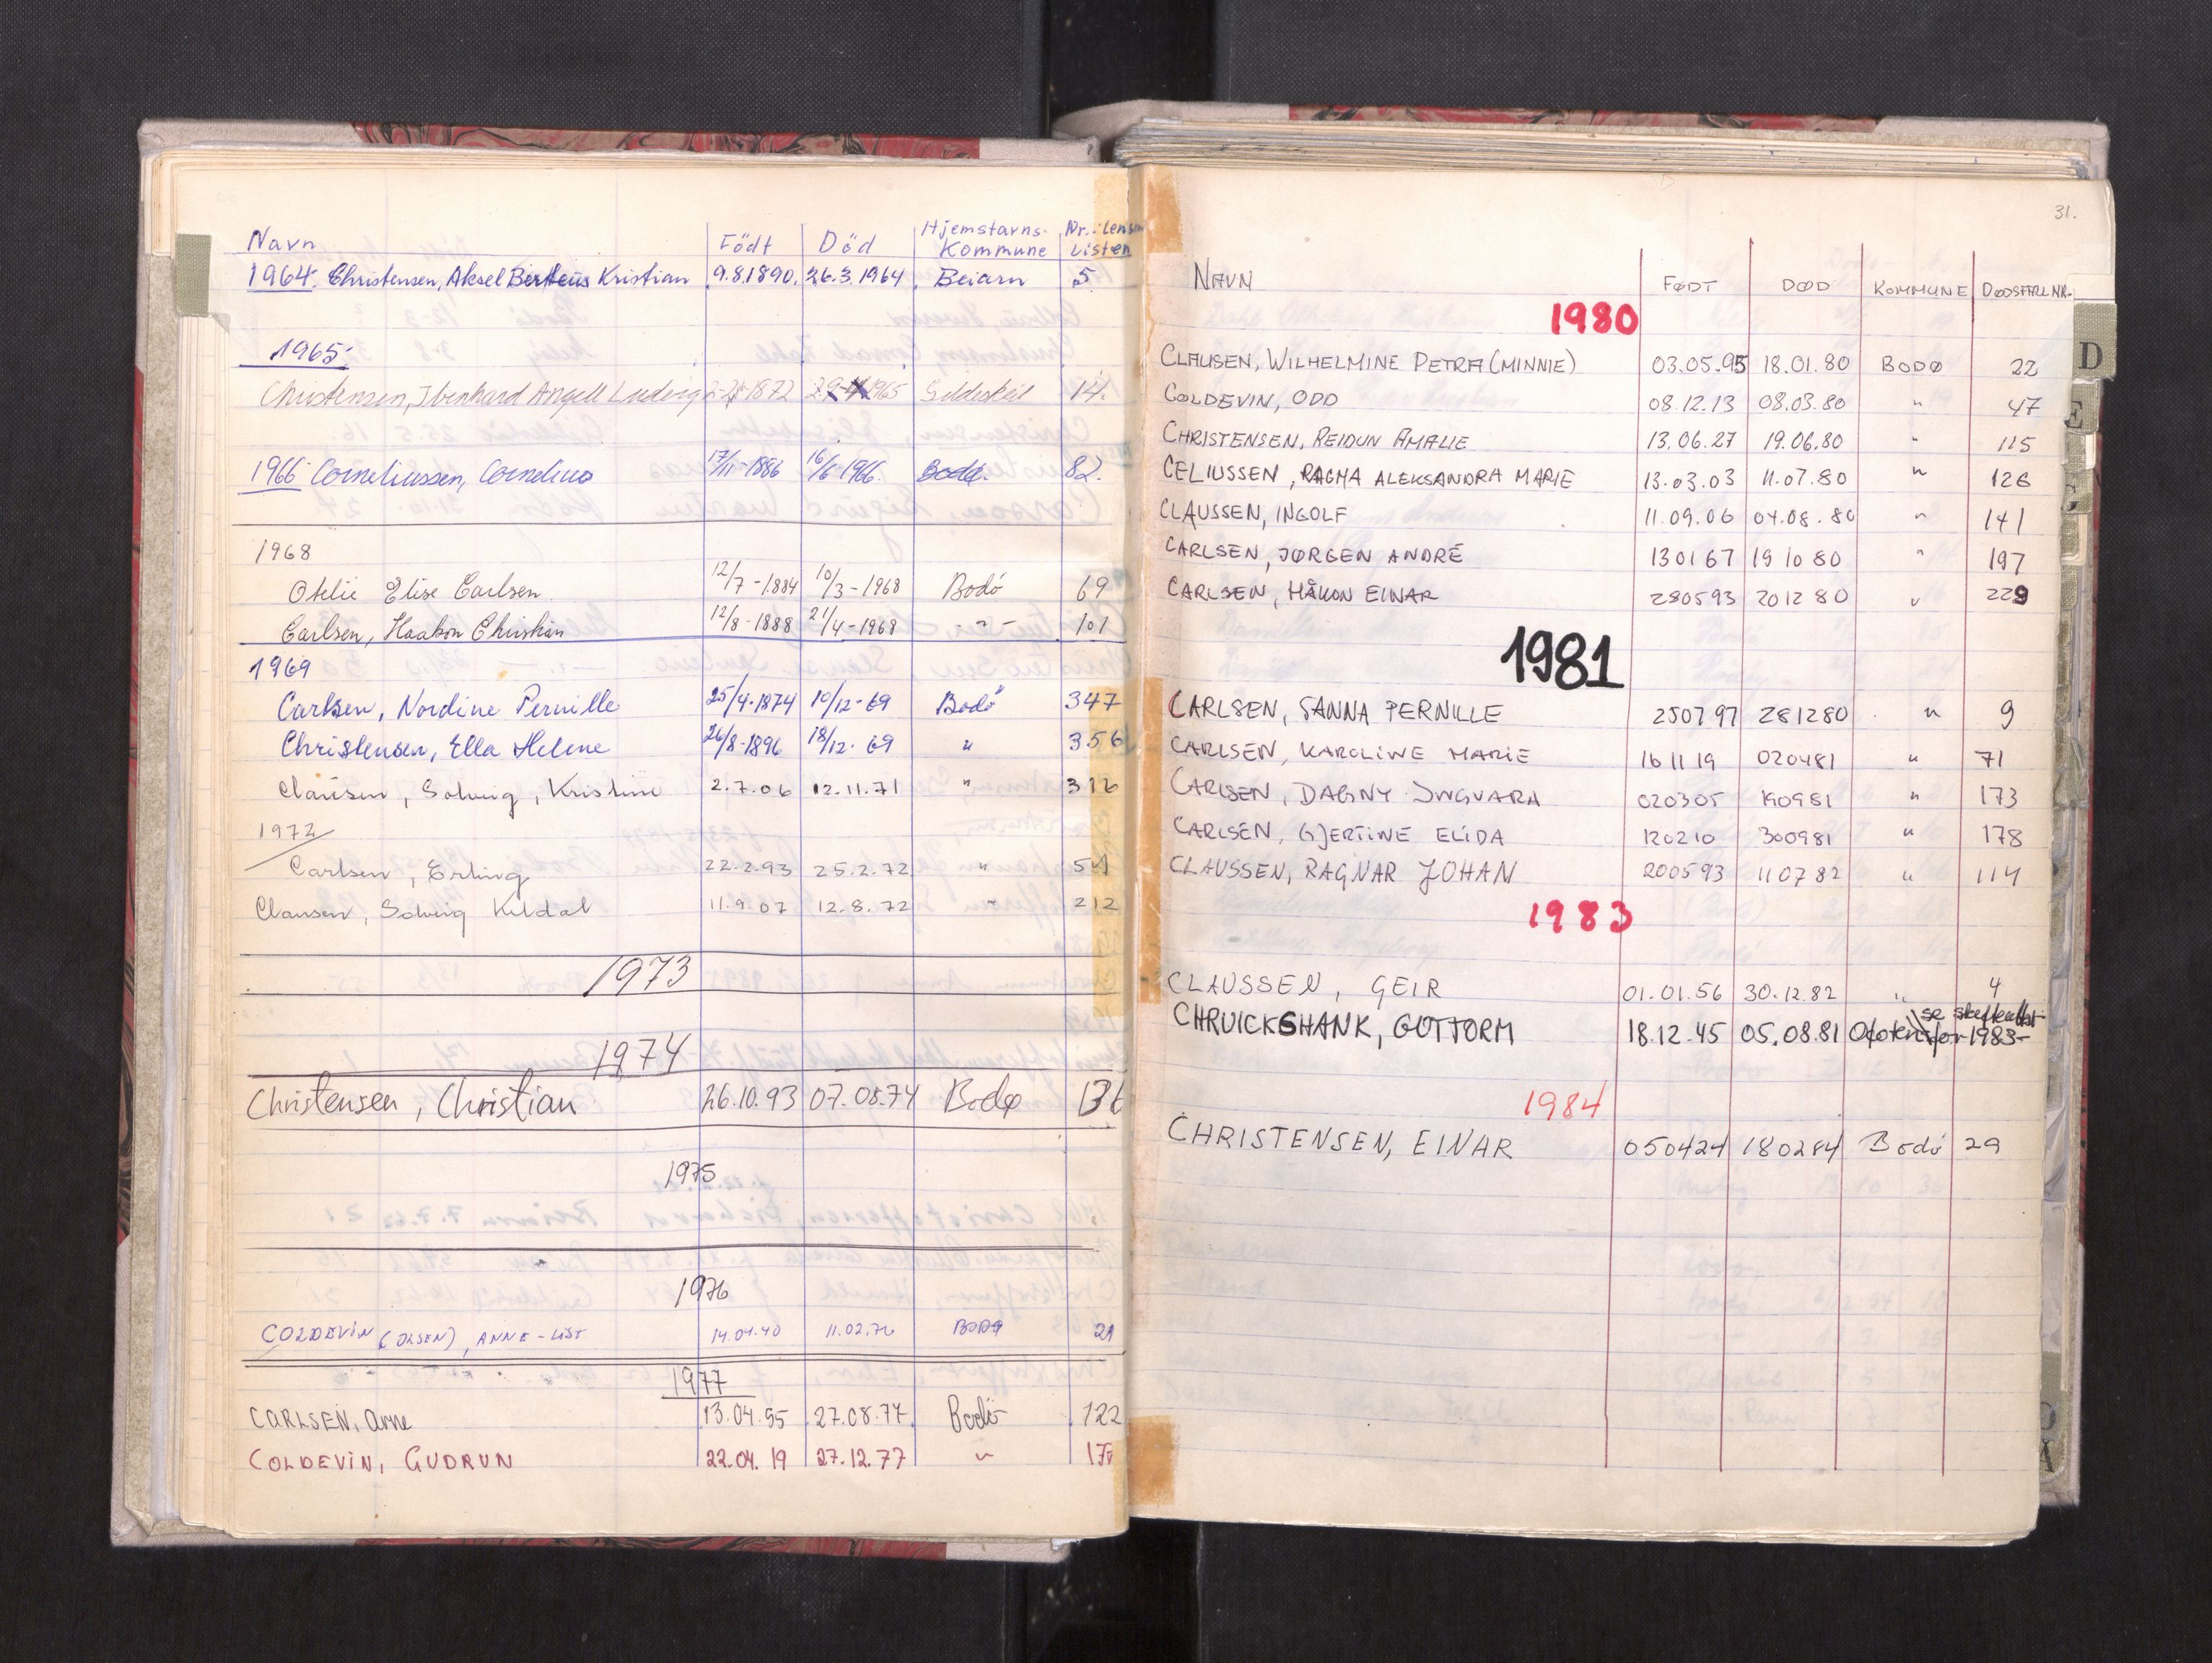 Navn Födt Död Hjemstavns- Kommune Nr. i lensm Listen
1964. Christensen, Aksel Kristian 9.8.1890. 26.3.1964 Beiarn 5
1965:
Christensen, Angell Ludvig 1872 1965 14.
1966 Corneliussen, Cornelius 17/11-1886 16/6-1966. Bodø. 82.
1968
Otelie Elise Carlsen. 12/7-1884 10/3-1968 Bodó 69
Carlsen, Haakon Christian 12/8-1888 21/4-1968 -"- 101
1969
Carlsen, Nordine Pernille 25/4-1874 10/12-69 Bodö 347
Christensen, Ella Helene 26/8-1896 18/12-69 " 356
Clausen, Solveig, Kristine 2.7.06 12.11.71 " 316
1972
Carlsen, Erling 22.2.93 25.2.72 " 54
Clausen, Solveig Kildal 11.9.07 12.8.72 " 212
1973
1974
Christensen, Christian 26.10.93 07.08.74 Bodø 136
1975
1976
COLDEVIN (OLSEN), ANNE-LISE 14.04.40 11.02.76 BODØ 21
1977
CARLSEN, Arne 13.04.95 27.08.77 Bodö 122
COLDEVIN, GUDRUN 22.04.19 27.12.77 "
31.
NAVN FØDT DØD KOMMUNE DØDSFALL NR.
1980
CLAUSEN, WILHELMINE PETRA (MINNIE) 03.05.95 18.01.80 BODØ 22
COLDEVIN, ODD 08.12.13 08.03.80 " 47
CHRISTENSEN, REIDUN AMALIE 13.06.27 19.06.80 " 115
CELIUSSEN, RAGNA ALEKSANDRA MARIE 13.03.03 11.07.80 " 126
CLAUSSEN, INGOLF 11.09.06 04.08.80 " 141
CARLSEN, JØRGEN ANDRÉ 130167 191080 " 197
CARLSEN, HÅKON EINAR 280593 201280 " 229
1981
CARLSEN, SANNA PERNILLE 250797 281280 " 9
CARLSEN, KAROLINE MARIE 161119 020481 " 71
CARLSEN, DAGNY INGVARA 020305 190981 " 173
CARLSEN, GJERTINE ELIDA 120210 300981 " 178
CLAUSSEN, RAGNAR JOHAN 200593 110782 " 114
1983
CLAUSSEN, GEIR 01.01.56 30.12.82 " 4
CHRUICKSHANK, GUTTORM 18.12.45 05.08.81 Ofoten se for 1983-
1984
CHRISTENSEN, EINAR 050424 180284 Bodö 29
D
E